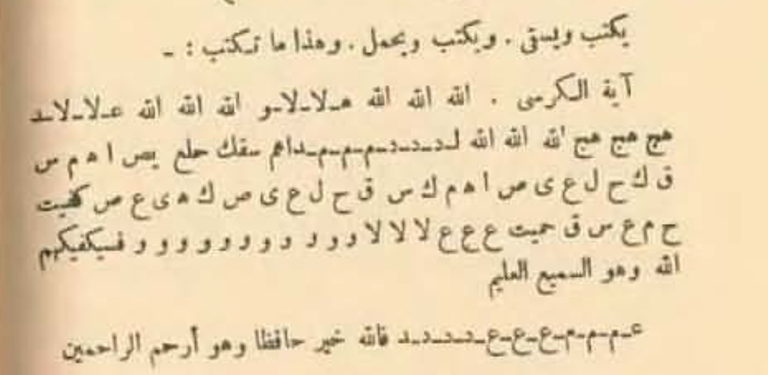 يكتب ويسقى . ويكتب ويحمل . وهذا ما تكتب : ـ
آية الكرسى . الله الله الله هـ لا لا و الله الله الله عـ لا لا د
هج هج هج الله الله الله لـ د د د م م م داهم سقك حلع يص ا ه م س
ق ك ح ل ع ى ص ا ه م ك س ق ح ل ع ى ص ك ه ى ع ص كفيت
ح م ع س ق حميت ع ع ع لا لا لا و و ر و و و و و و و و فسيكفيكهم
الله وهو السميع العليم
عـ مـ مـ مـ عـ عـ عـ د د د د فالله خير حافظا وهو أرحم الراحمين